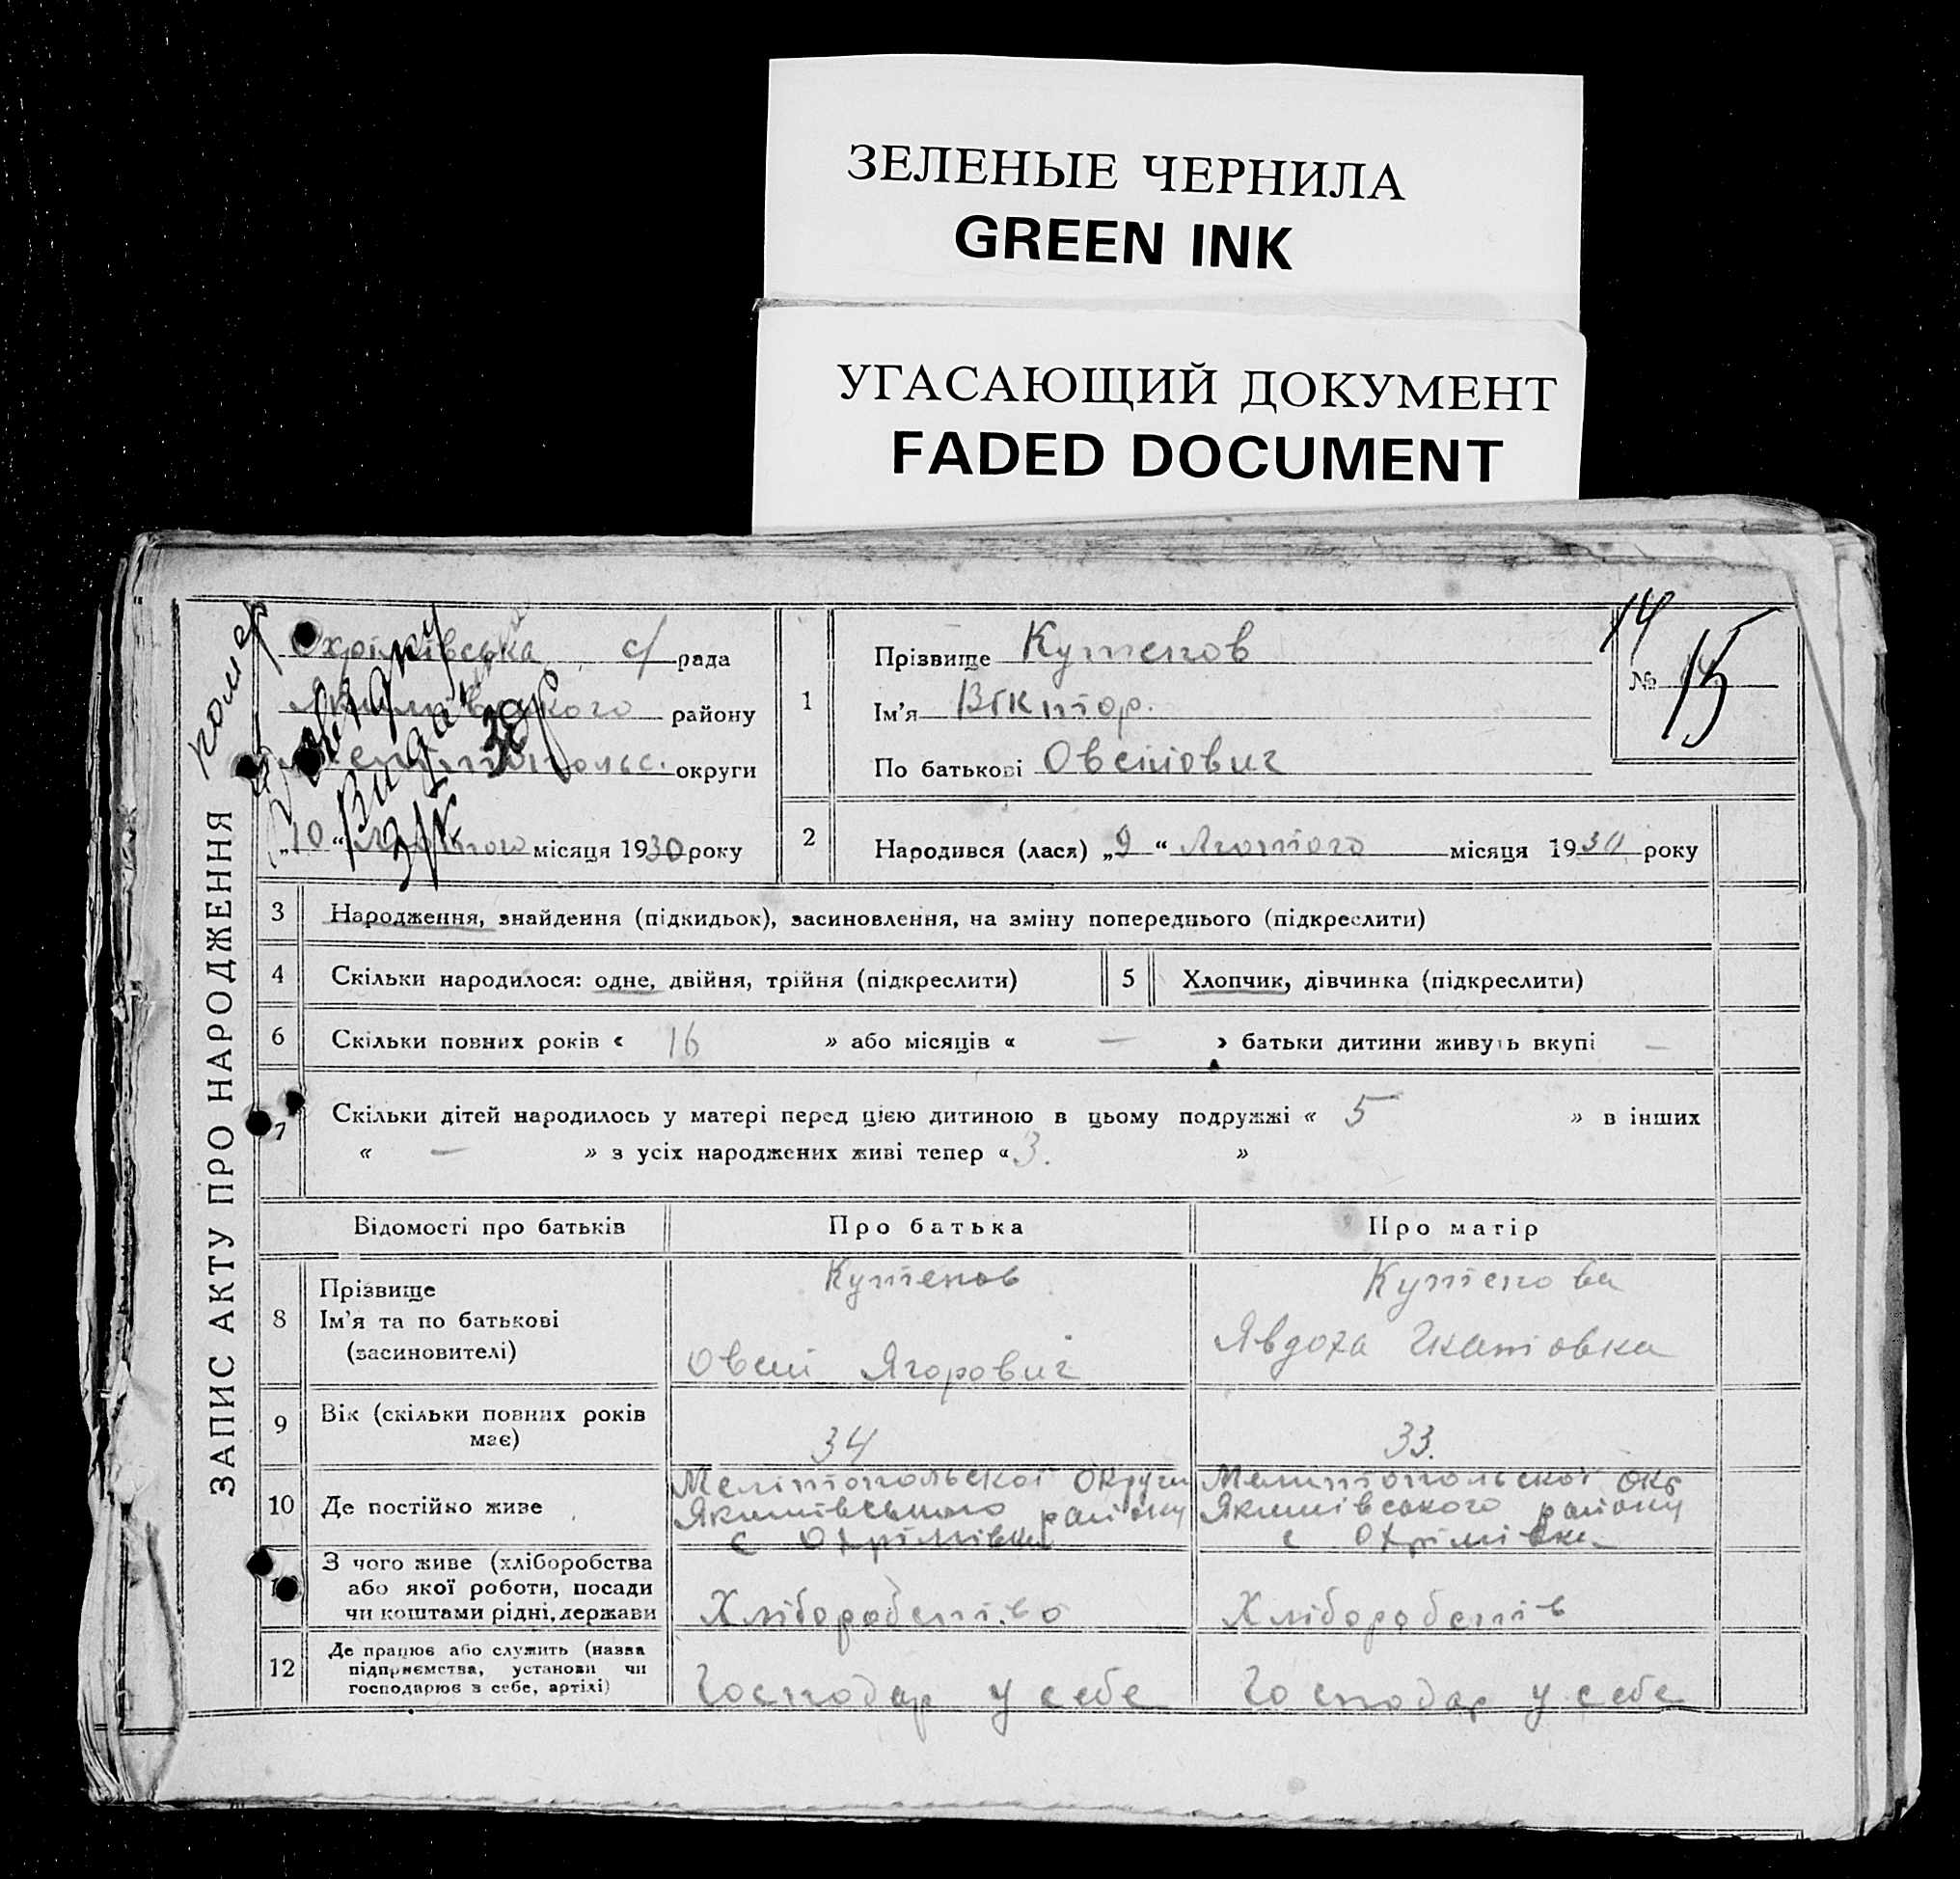 ЗЕЛЕНЫЕ ЧЕРНИЛА
GREEN INK
УГАСАЮЩИЙ ДОКУМЕНТ
FADED DOCUMENT
ЗАПИС АКТУ ПРО НАРОДЖЕННЯ
Охрімівська с/рада
району
округи
„10“ Лютого місяця 1930 року
1
Прізвище Кутепов
Ім'я Віктор.
По батькові
14
№ 15
2
Народився (лася) „9“ Лютого місяця 1930 року
3
Народження, знайдення (підкидьок), засиновлення, на зміну попереднього (підкреслити)
4
Скільки народилося: одне, двійня, трійня (підкреслити)
5
Хлопчик, дівчинка (підкреслити)
6
Скільки повних років « 16 » або місяців « — » батьки дитини живуть вкупі —
7
Скільки дітей народилось у матері перед цією дитиною в цьому подружжі « 5 » в інших
« — » з усіх народжених живі тепер « 3. »
Відомості про батьків
Про батька
Про матір
8
Прізвище
Ім'я та по батькові
(засиновителі)
Кутепов
Ягорович
Кутепова
Явдоха
9
Вік (скільки повних років
має)
34
33.
10
Де постійно живе
Мелітопольської Округи
Якимівського району
с Охрімівка
Мелитопольської Окр
Якимівського району
с Охрімівка
З чого живе (хліборобства
або якої роботи, посади
чи коштами рідні, держави
Хліборобство
Хліборобств
12
Де працює або служить (назва
підприємства, установи чи
господарює з себе, артілі)
Господар у себе
Господар у себе